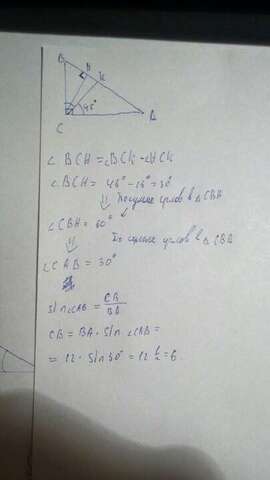 B
H
K
45°
A
C
∠ BCH = ∠BCK - ∠HCK
∠ BCH = 45° - 15° = 30°
По сумме углов в △ CBH
∠ CBH = 60°
По сумме углов в △ CBA
∠ CAB = 30°
sin ∠CAB = CB/BA
CB = BA · sin ∠CAB =
= 12 · sin 30° = 12 · 1/2 = 6